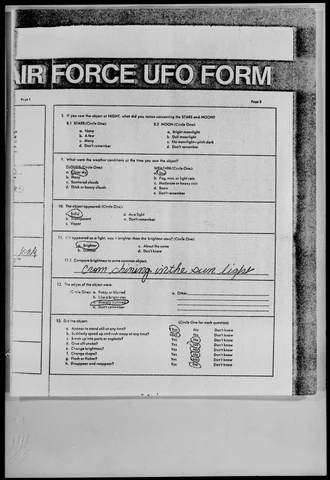 AIR FORCE UFO FORM
Page 1
Page 2
If you saw the object at NIGHT, what did you notice concerning the STARS and MOON?
8.1 STARS (Circle One):
8.2 MOON (Circle One):
a. None
a. Bright moonlight
b. A few
b. Dull moonlight
c. Many
c. No moonlight—pitch dark
d. Don't remember
d. Don't remember
9. What were the weather conditions at the time you saw the object?
CLOUDS (Circle One):
WEATHER (Circle One):
a.
a. Dry
b. Hazy
b. Fog, mist, or light rain
c. Scattered clouds
c. Moderate or heavy rain
d. Thick or heavy clouds
d. Snow
e. Don't remember
10. The object appeared: (Circle One):
a. Solid
d. As a light
b. Transparent
e. Don't remember
c. Vapor
11. If it appeared as a light, was it brighter than the brightest stars? (Circle One):
a. Brighter
c. About the same
b. Dimmer
d. Don't know
11.1 Compare brightness to some common object:
crom shining in the sun light
12. The edges of the object were:
(Circle One): a. Fuzzy or blurred
e. Other
b. Like a bright star
c. Sharply outlined
d. Don't remember
13. Did the object:
(Circle One for each question)
a. Appear to stand still at any time?
Yes No Don't know
b. Suddenly speed up and rush away at any time?
Yes No Don't know
c. Break up into parts or explode?
Yes No Don't know
d. Give off smoke?
Yes No Don't know
e. Change brightness?
Yes No Don't know
f. Change shape?
Yes No Don't know
g. Flash or flicker?
Yes No Don't know
h. Disappear and reappear?
Yes No Don't know